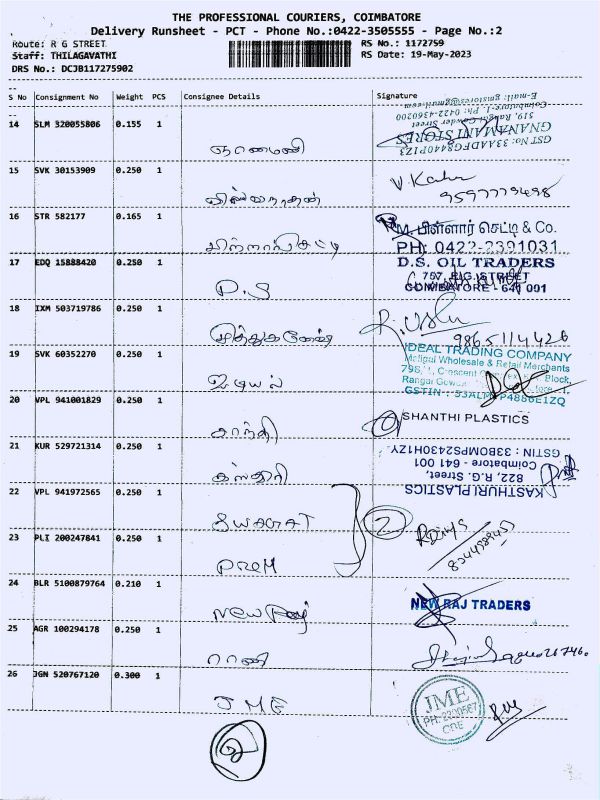 THE PROFESSIONAL COURIERS, COIMBATORE
Delivery Runsheet - PCT - Phone No.:0422-3505555 - Page No.:2
Route: R G STREET
RS No.: 1172759
Staff: THILAGAVATHI
RS Date: 19-May-2023
DRS No.: DCJB117275902
S No Consignment No Weight PCS Consignee Details Signature
14 SLM 320055806 0.155 1
GST No: 33AADFG8440P1Z3
GNANAMANI STORES
519, Rangai Gowder Street
Coimbatore-1. Ph: 0422-4360200
E-mail: gnstores@gmail.com
ஞானமணி
15 SVK 30153909 0.250 1
விஸ்வநாதன்
9597779498
16 STR 582177 0.165 1
M. பிள்ளார் செட்டி & Co.
PH: 0422-2391031
17 EDQ 15888420 0.250 1
D.S. OIL TRADERS
757, R.G. STREET
COIMBATORE - 641 001
D.S
18 IXM 503719786 0.250 1
முத்துகணேஷ்
9865114426
19 SVK 60352270 0.250 1
IDEAL TRADING COMPANY
Wholesale & Retail Merchants
Block,
ஐடியல்
20 VPL 941001829 0.250 1
SHANTHI PLASTICS
சாந்தி
21 KUR 529721314 0.250 1
GSTIN : 33BOMPS2430H1ZY
KASTHURI PLASTICS
822, R.G. Street,
Coimbatore - 641 001
கஸ்தூரி
22 VPL 941972565 0.250 1
2
23 PLI 200247841 0.250 1
PREM
24 BLR 5100879764 0.210 1
NEW RAJ TRADERS
New Raj
25 AGR 100294178 0.250 1
ராணி
26 JGN 520767120 0.300 1
JME
JME
CBE